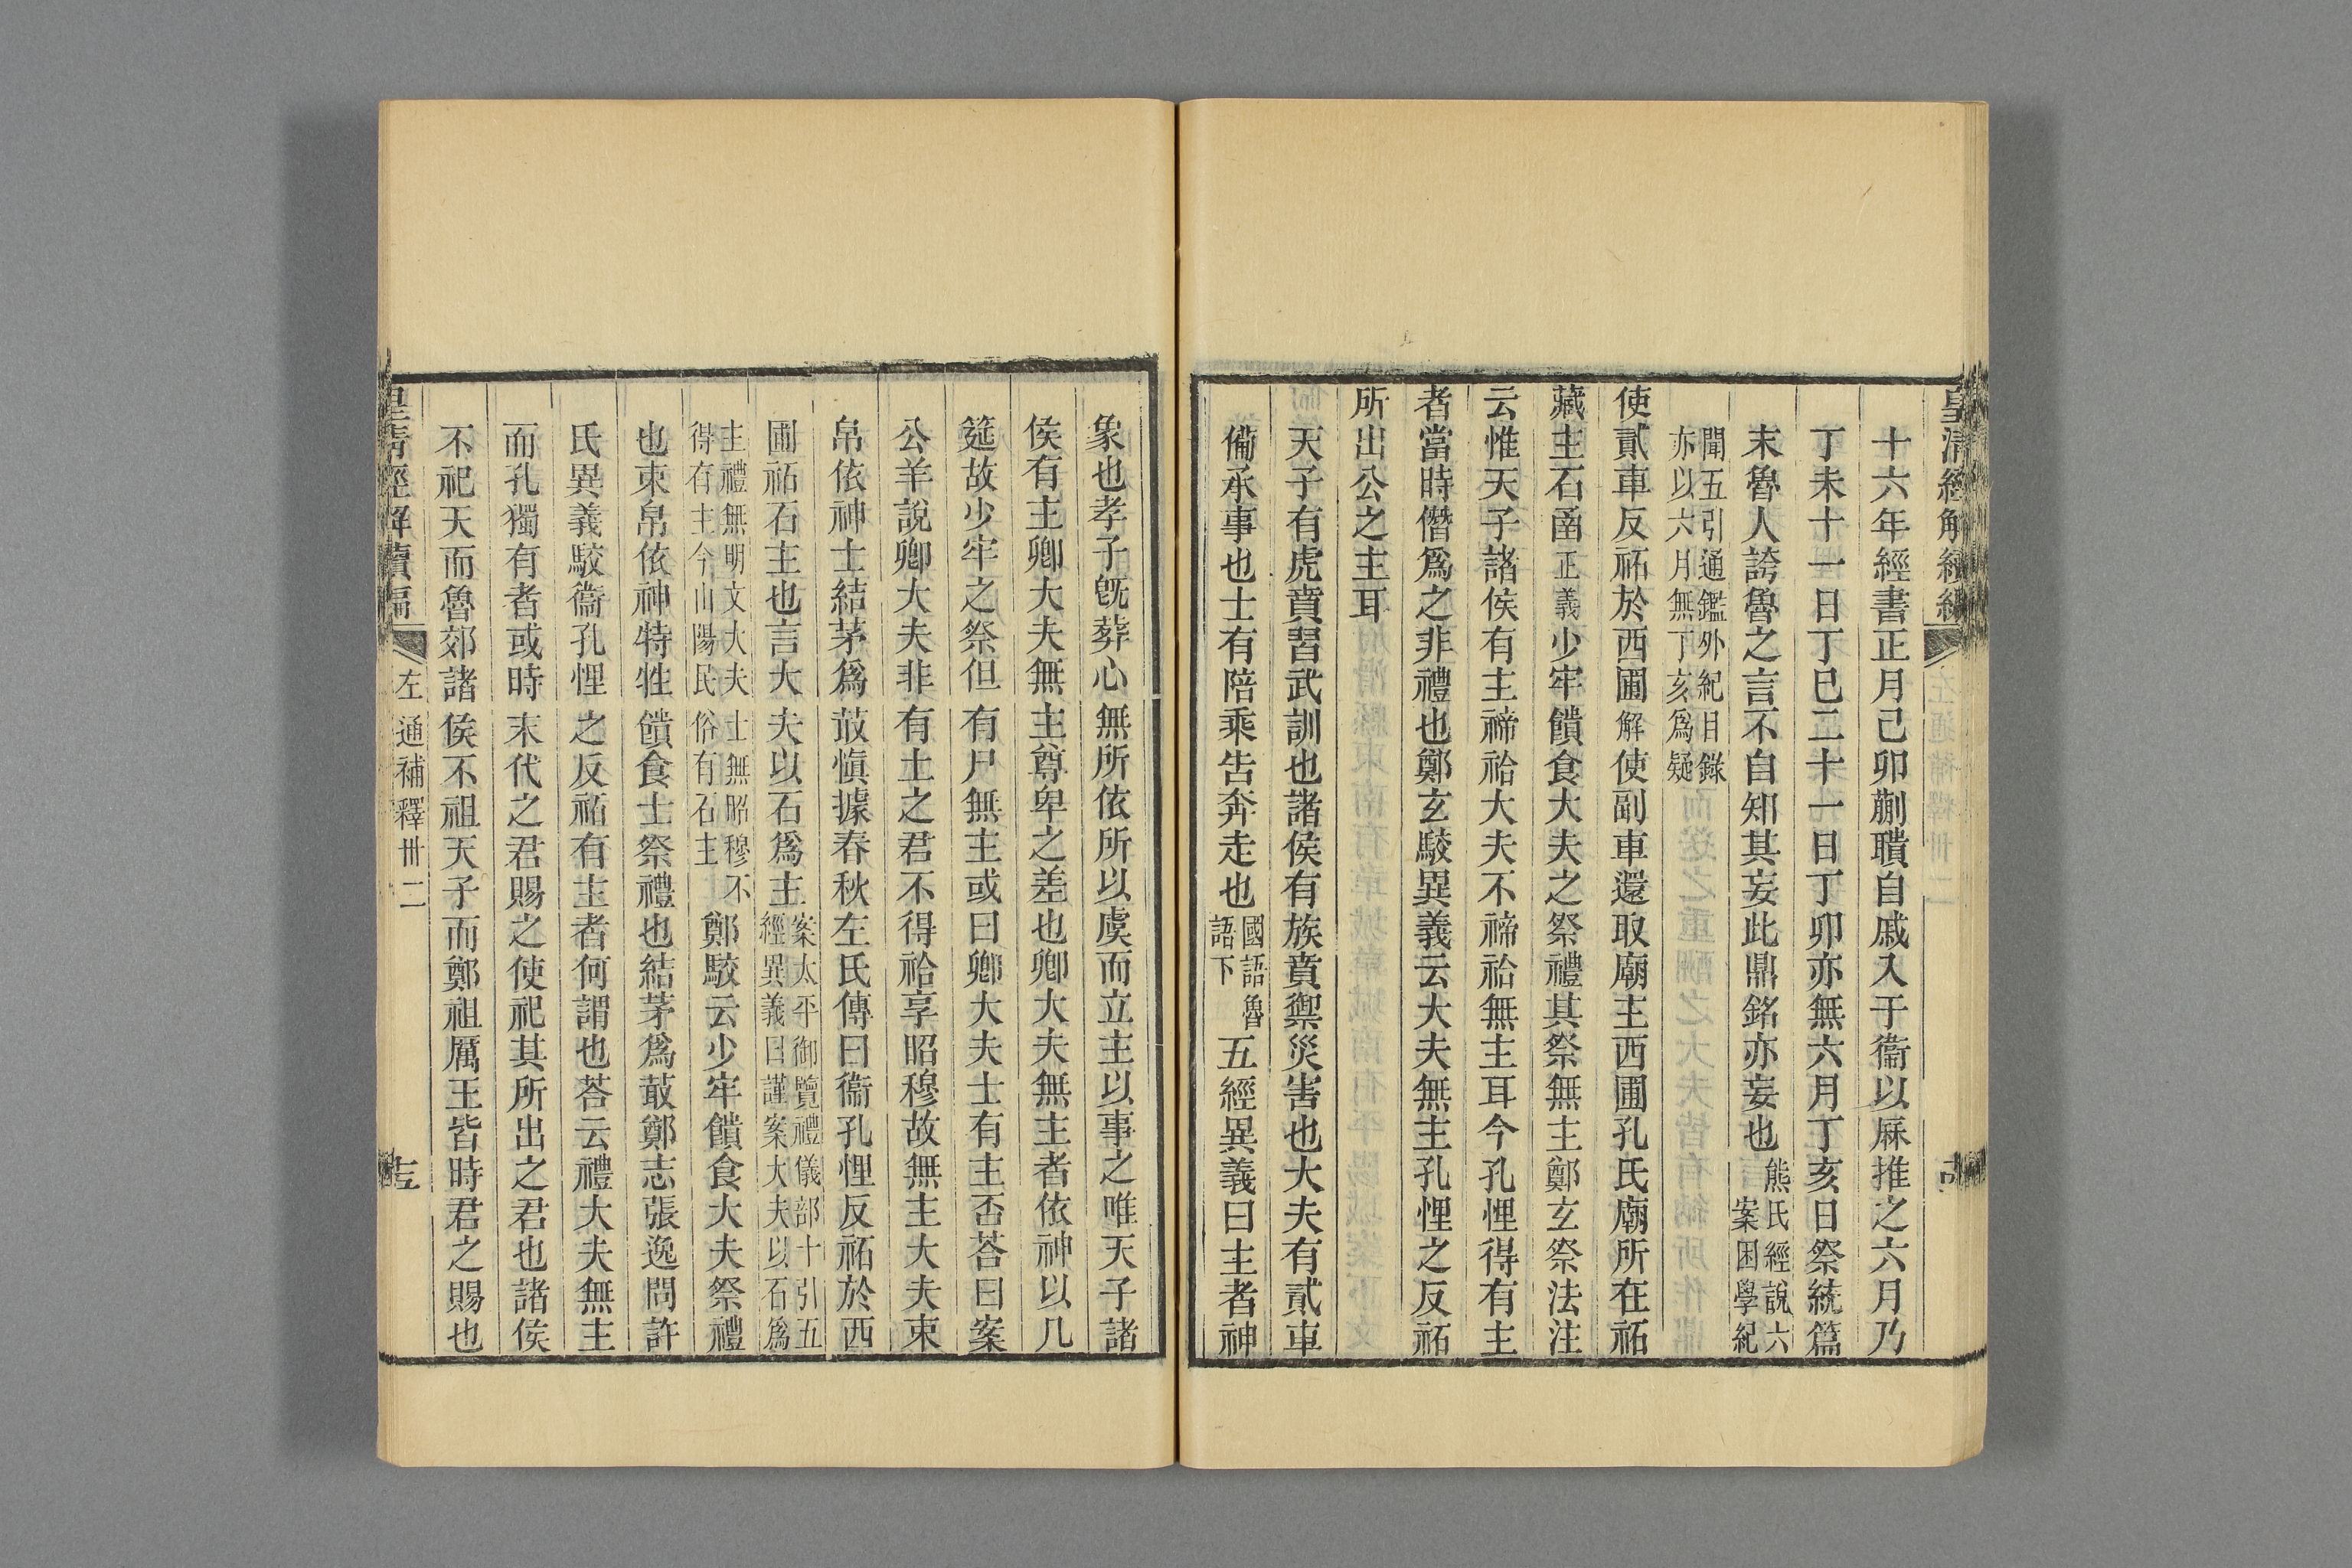 皇清經解續編
十六年經書正月己卯蒯聵自戚入于衞以厤推之六月乃
丁未十一日丁巳二十一日丁卯亦無六月丁亥日祭統篇
末魯人誇魯之言不自知其妄此鼎銘亦妄也熊氏經說六案困學紀
聞五引通鑑外紀目錄亦以六月無丁亥爲疑
使貳車反祏於西圃解使副車還取廟主西圃孔氏廟所在祏
藏主石函正義少牢饋食大夫之祭禮其祭無主鄭玄祭法注
云惟天子諸侯有主禘祫大夫不禘祫無主耳今孔悝得有主
者當時僭爲之非禮也鄭玄駮異義云大夫無主孔悝之反祏
所出公之主耳
天子有虎賁習武訓也諸侯有族賁禦災害也大夫有貳車
備承事也士有陪乘告奔走也國語魯語下五經異義曰主者神
象也孝子旣葬心無所依所以虞而立主以事之唯天子諸
侯有主卿大夫無主尊卑之差也卿大夫無主者依神以几
筵故少牢之祭但有尸無主或曰卿大夫士有主否荅曰案
公羊說卿大夫非有土之君不得祫享昭穆故無主大夫束
帛依神士結茅爲菆愼據春秋左氏傳曰衞孔悝反祏於西
圃祏石主也言大夫以石爲主案太平御覽禮儀部十引五經異義曰謹案大夫以石爲
主禮無明文大夫士無昭穆不得有主今山陽民俗有石主鄭駮云少牢饋食大夫祭禮
也束帛依神特牲饋食士祭禮也結茅爲菆鄭志張逸問許
氏異義駮衞孔悝之反祏有主者何謂也荅云禮大夫無主
而孔獨有者或時末代之君賜之使祀其所出之君也諸侯
不祀天而魯郊諸侯不祖天子而鄭祖厲王皆時君之賜也
皇清經解續編
左通補釋卅二